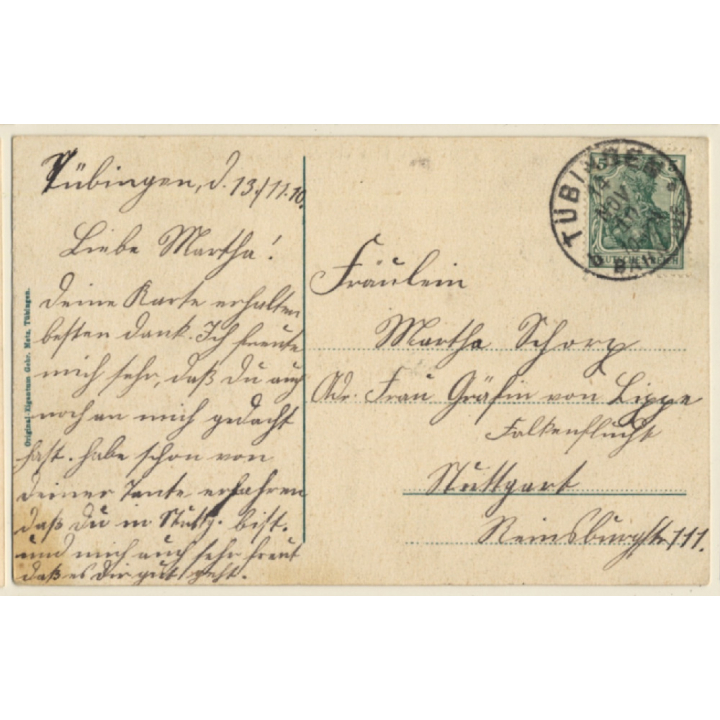 Tübingen, d. 13./11.10.
Liebe Martha!
Deine Karte erhalten
besten Dank. Ich freute
mich sehr, daß Du auch
noch an mich gedacht
hast. habe schon von
deiner Tante erfahren
daß Du in Stuttg. bist.
und mich auch sehr freut
daß es Dir gut geht.
Original-Eigentum Gebr. Metz, Tübingen.
TÜBINGEN
14
NOV
10
BAH
DEUTSCHES REICH
Fräulein
Martha Schorp
Adr. Frau Gräfin von Lippe
Falkenflucht
Stuttgart
Reinsburgstr 111.